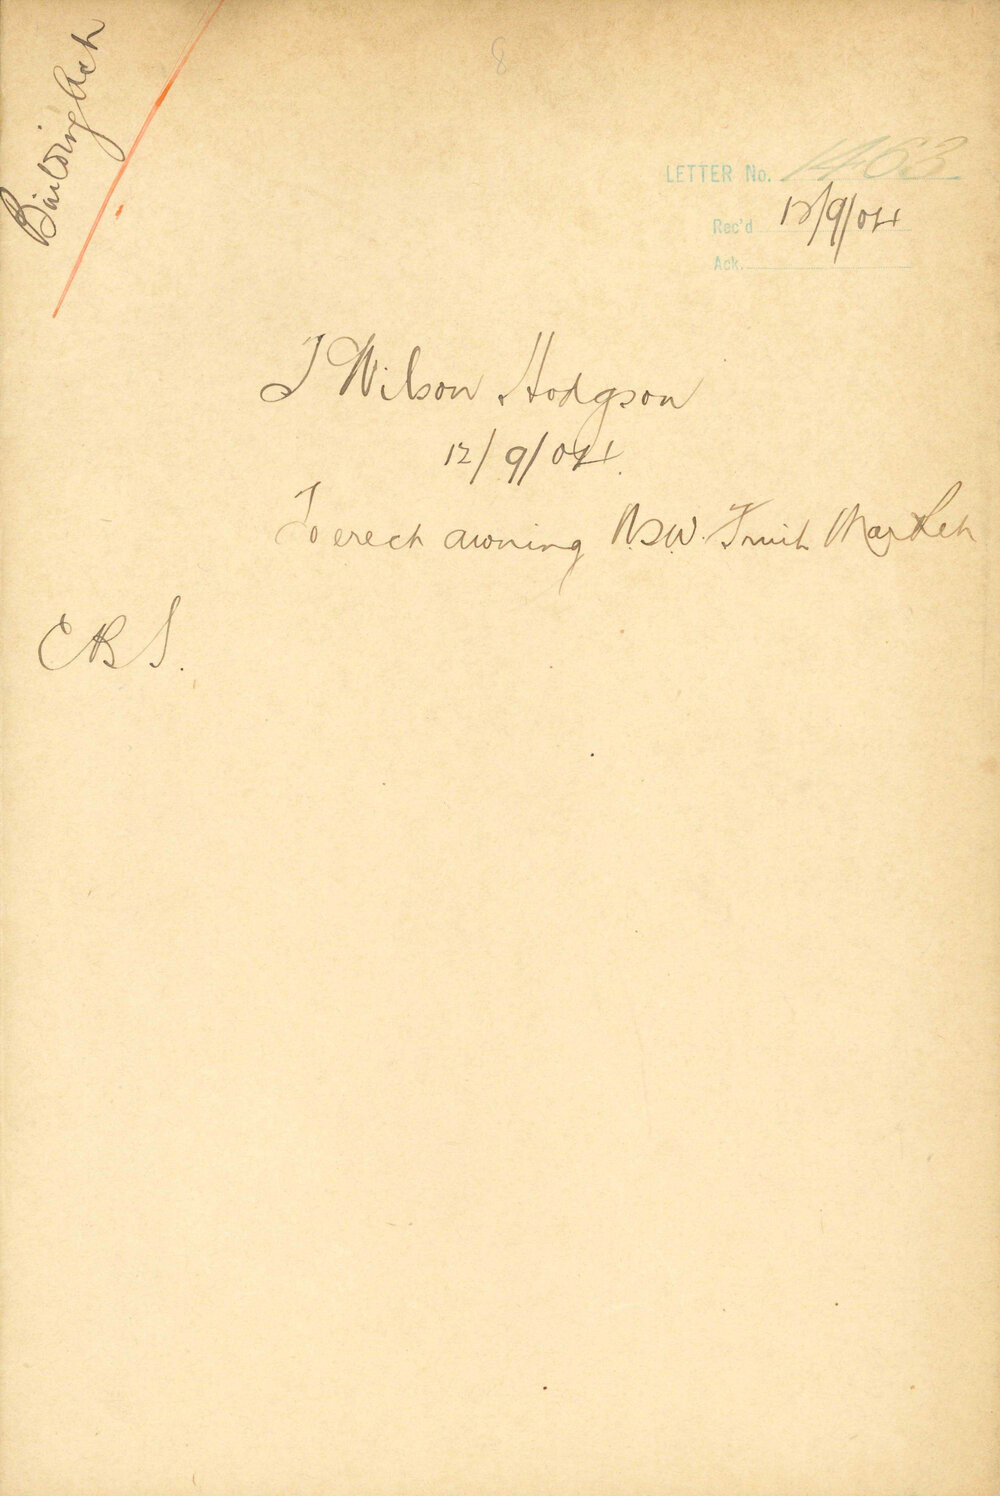 Building Act
8
LETTER No. 1463
Rec'd 12/9/04
Ack.
J Wilson Hodgson
12/9/04.
To erect awning N.S.W. Fruit Market